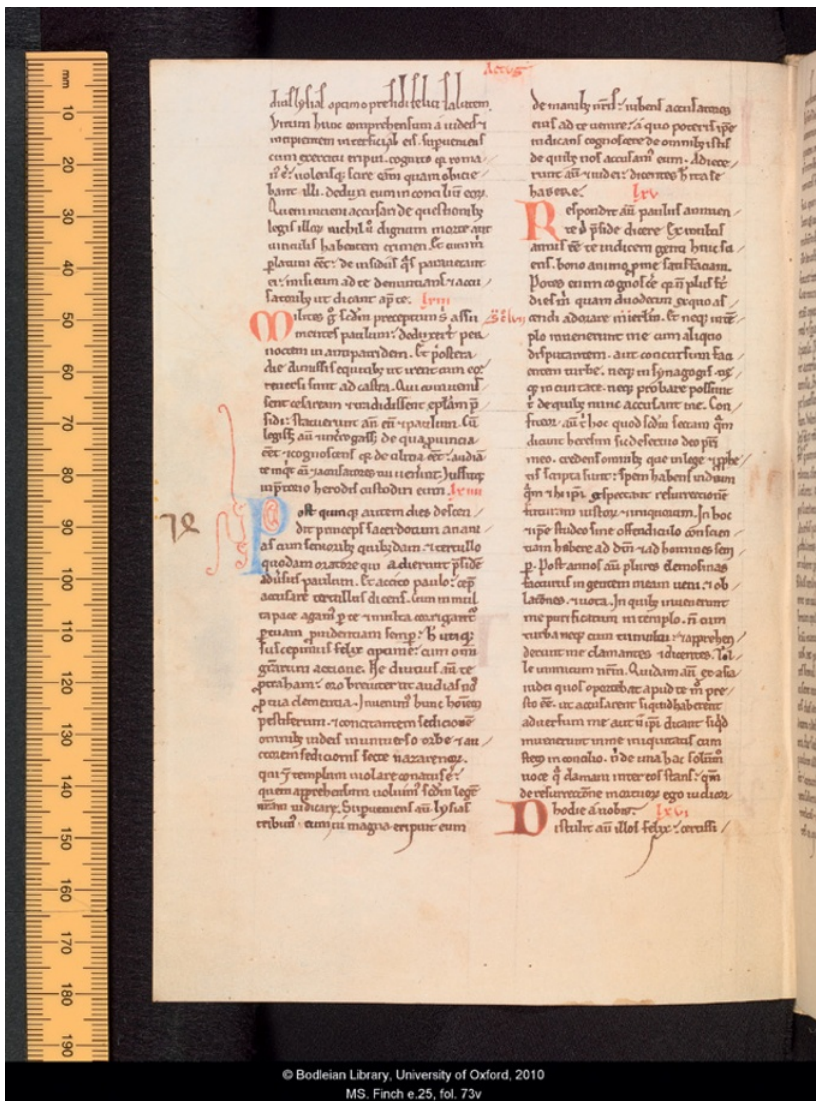 mm
10
20
30
40
50
60
70
80
90
100
110
120
130
140
150
160
170
180
190
Actus
dius lysias optimo presidi felici salutem.
Virum hunc comprehensum a iudeis ⁊
incipientem interfici ab eis. supueniens
cum exercitu eripui. cognito qͥ roma
nꝰ ē. volensq; scire cām quam obicie
bant illi. deduxi eum in concilium eoꝝ.
Quem inueni accusari de questionibꝫ
legis illoꝝ nichil ū dignum morte aut
uinculis habentem crimen. Et cum m̄
platum eēt: de insidiis qͣs parauerant
ei: misi eum ad te denuntians ⁊ accu
satoribꝫ ut dicant apͩ te. lxiii
Milites gͦ scdm preceptum s̄ assu
mentes paulum: duxert̄ per
noctem in antipatridem. Et postera
die dimissis equitibꝫ ut irent cum eo:
reuersi sunt ad castra. Qui cum uenis
sent cesaream ⁊ tradidissent eplam p̄
sidi: statuerunt an̄ eū ⁊ paulum. Cū
legiss; au̅ ⁊ int̄rogass; de qua puincia
eēt ⁊ cognoscens qͥ de cilicia eēt: audiā
te inqͥt cū ⁊ accusatores tui uenint. Jussitq;
in ptorio herodis custodiri eum. lxiiii
Post quinq; autem dies descen
dit princeps sacerdotum anani
as cum senioribꝫ quibꝫdam. ⁊ tertullo
quodam oratore qui adierunt psidē
aduersus paulum. Et accito paulo: cep̄
accusare tertullus dicens. Cum in mul
ta pace agamꝰ p te ⁊ multa corrigantᷣ
p tuam prudentiam semp ⁊ ubiq;
suscepimus felix optime: cum om̄i
gratiarum actione. Ne diutius au̅ te
ptraham: oro breuiter ut audias nos
p tua clementia. Inuenimꝰ hunc hoīem
pestiferum. ⁊ concitantem seditionē
omnibꝫ iudeis in uniuerso orbe ⁊ au
ctorem seditionis secte nazarenoꝝ.
qui ⁊ templum uiolare conatus ē:
quem apprehensum uoluimꝰ scdm legē
nr̄am iudicare. Superueniens au̅ lysias
tribunꝰ cum ui magna eripuit eum
de manibꝫ nr̄is: iubens accusatores
eius ad te uenire: a quo poteris ipse
iudicans cognoscere de omnibꝫ istis
de quibꝫ nos accusamꝰ eum. Adiece
runt au̅ ⁊ iudei: dicentes h̄ ita se
habere. lxv
Respondit au̅ paulus annuen
te ſ̄ pside dicere Ex multis
annis eē te iudicem genti huic sci
ens. bono animo p me satisfaciam.
Potes enim cognosce qͥ n̄ plus sr̄
dies m̄ quam duodecim ex quo as
cendi adorare in ierlm. Et neq; in tē
plo inuenerunt me cum aliquo
disputantem. aut concursum faci
entem turbe. neq; in synagogis neq;
q; in ciuitate. neq; probare possunt
t̄ de quibꝫ nunc accusant me. Con
fiteor au̅ t̄ hoc quod scdm sectam qͣm
dicunt heresim sic deseruio deo pr̄i
meo. credens omnibꝫ que in lege ⁊ pphe
tis scripta sunt: spem habens in dm̄
qͣm ⁊ hi ipi expectant resurrectionē
futuram iustoꝝ ⁊ iniquoꝝ. In hoc
⁊ ipse studeo sine offendiculo conscien
tiam habere ad dm̄ ⁊ ad homines sem
p. Post annos au̅ plures elemosinas
facturus in gentem meam ueni. ⁊ ob
lationes. ⁊ uota. In quibꝫ inuenerunt
me purificatum in templo. n̄ cum
turba neq; cum tumultu: ⁊ apprehen
derunt me clamantes ⁊ dicentes. Tol
le inimicum nr̄m. Quidam au̅ ex asia
iudei quos oportebat apud te m̄ pre
sto eē. ⁊ accusarent siquid haberent
aduersum me. aut ii ipi dicant siqͥd
inuenerunt in me iniquitatis cum
stem in concilio. n̄ de una hac solūm̄
uoce qͣ clamaui inter eos stans: qm̄
de resurrectione mortuoꝝ ego iudicor
hodie a uobis. lxvi
Distulit au̅ illos felix: certissi
© Bodleian Library, University of Oxford, 2010
MS. Finch e.25, fol. 73v